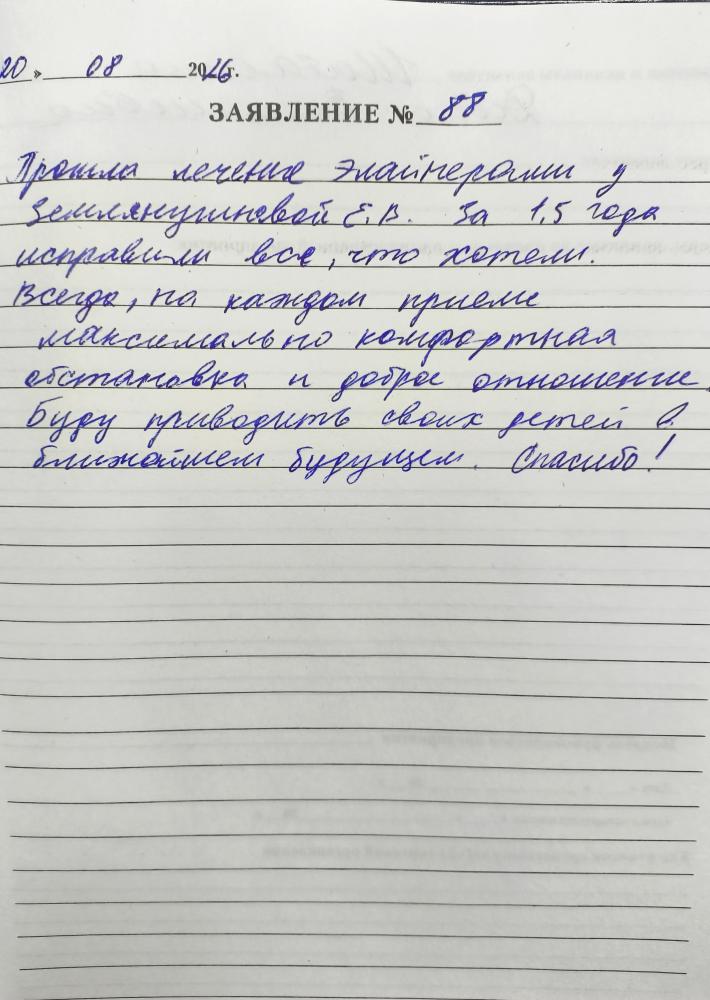 20 » 08 2026г.
ЗАЯВЛЕНИЕ № 88
Прошла лечение элайнерами у
Землянушневой Е.В. За 1,5 года
исправили все, что хотели.
Всегда, на каждом приеме
максимально комфортная
обстановка и доброе отношение.
Буду приводить своих детей в
ближайшем будущем. Спасибо!